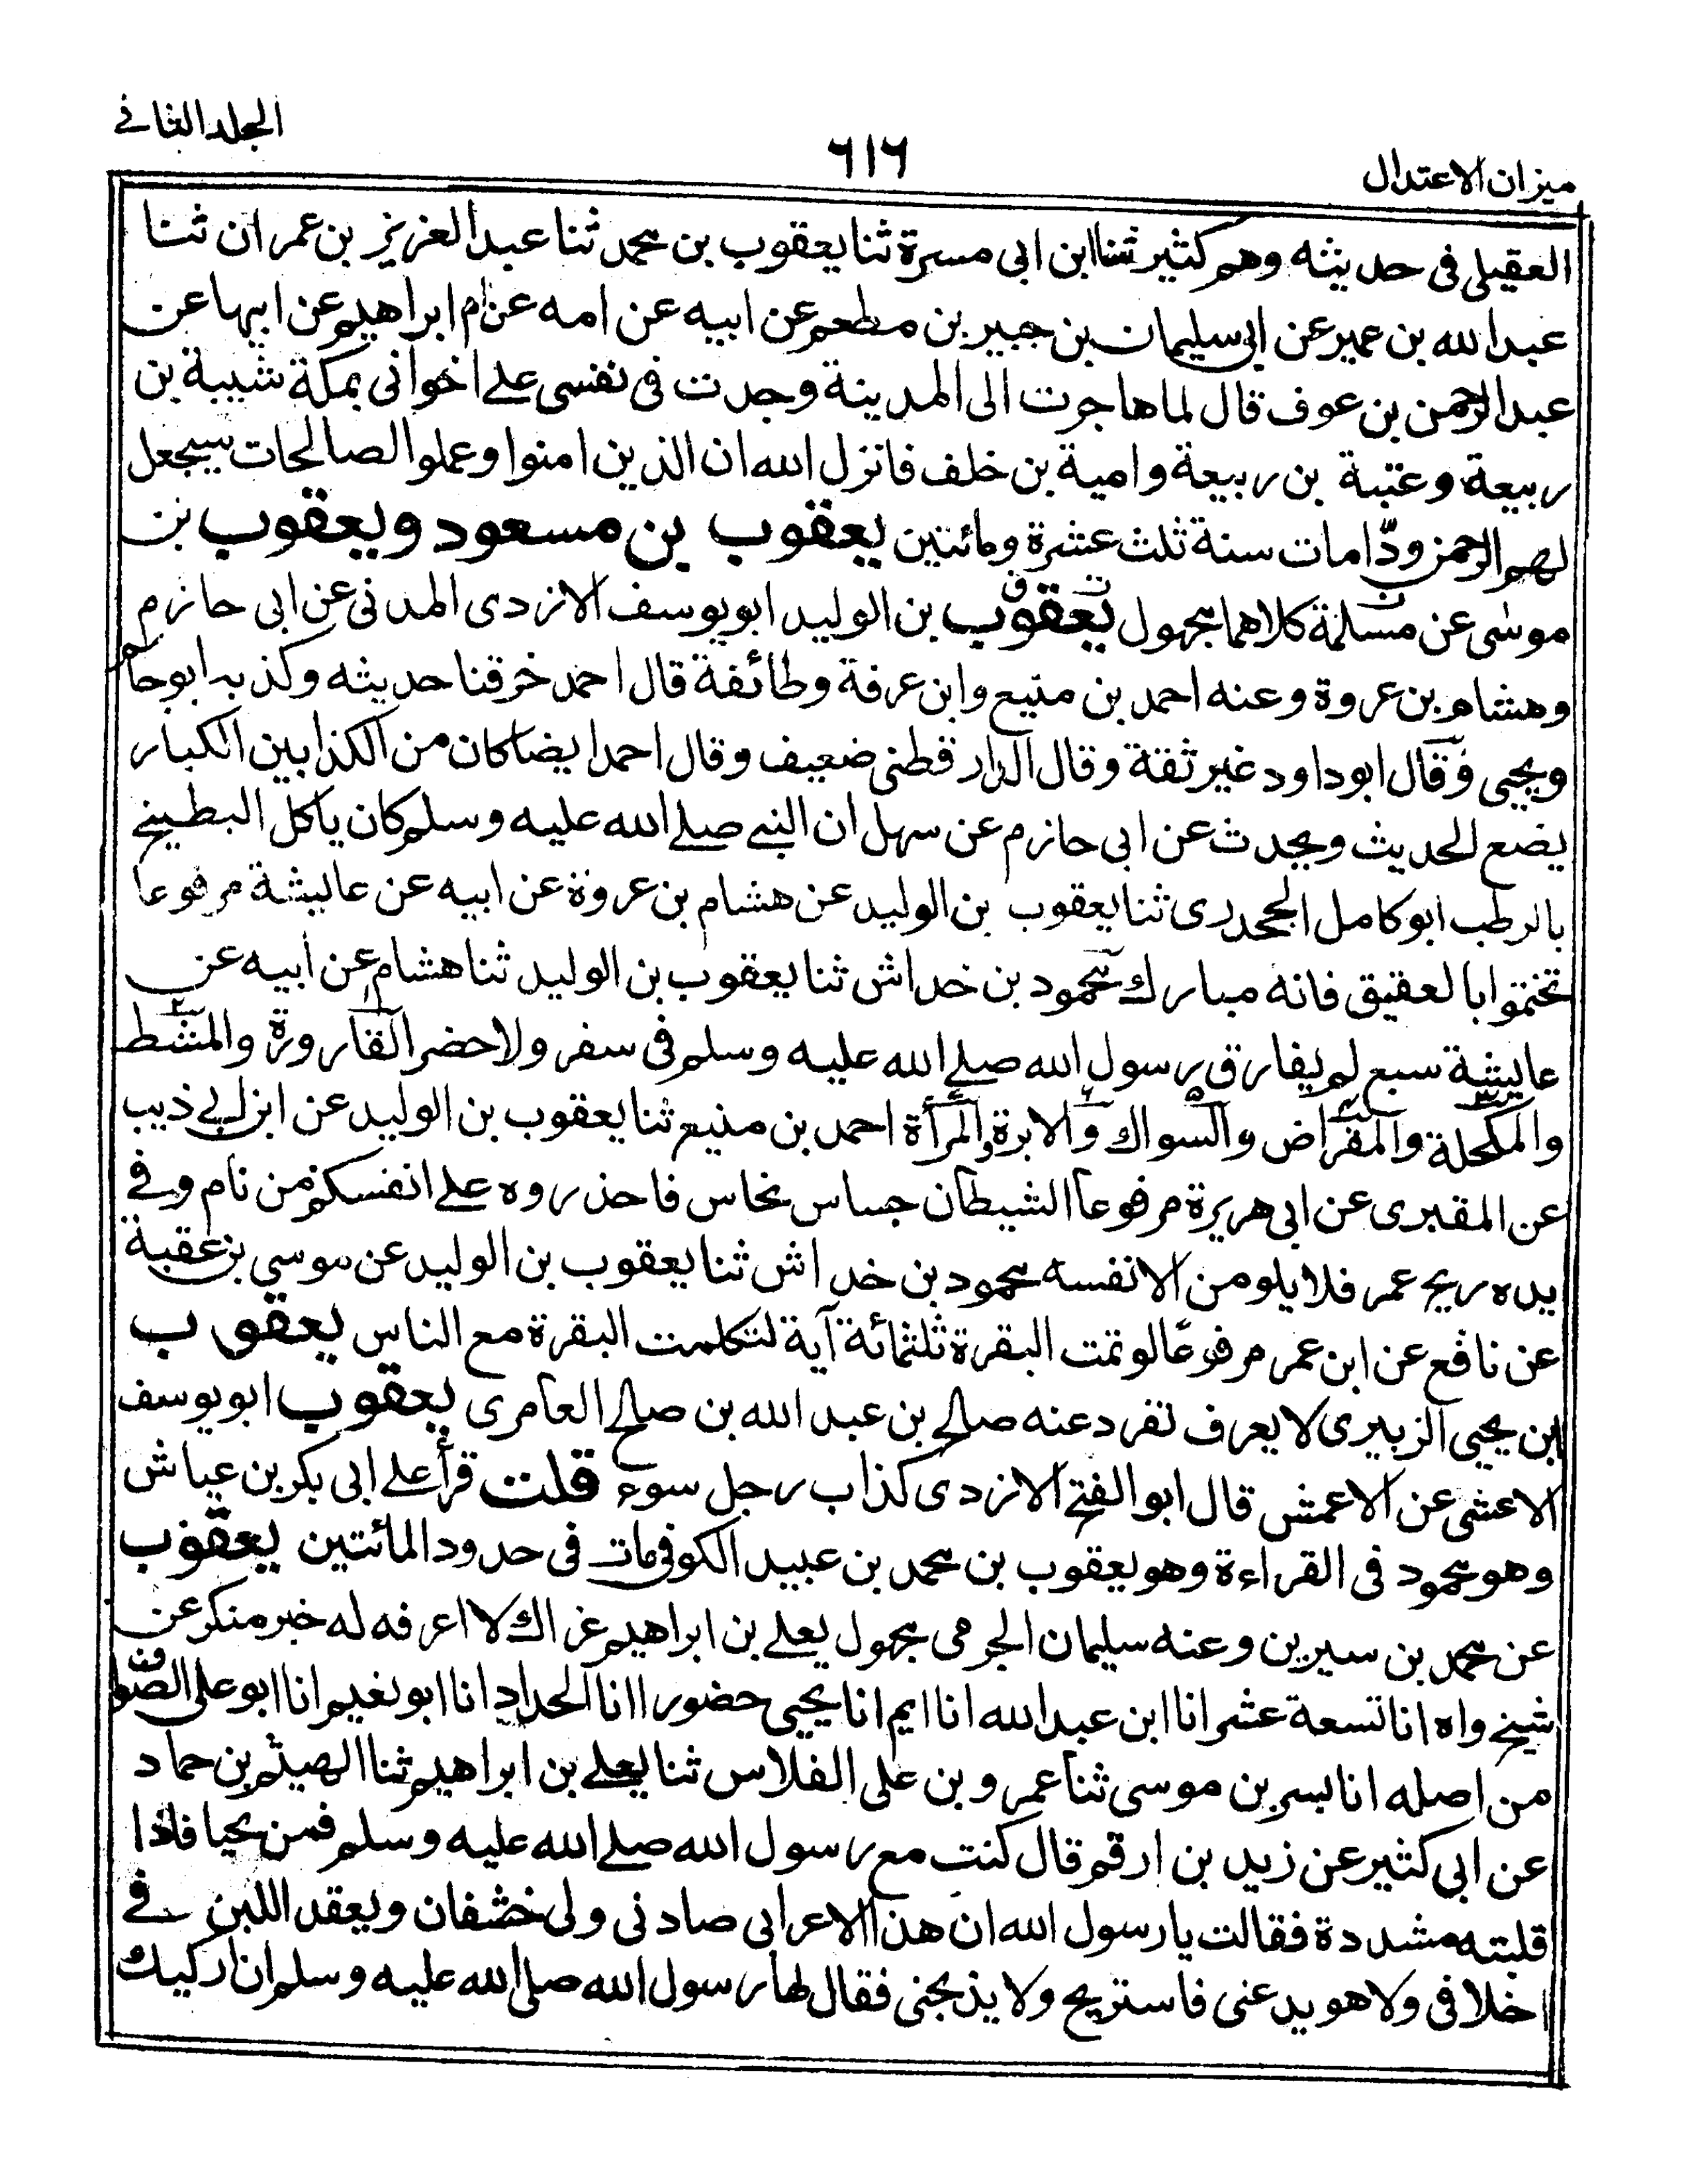 الجلد الثانی
۶۱۶
میزان الاعتدال
العقیلی فی حدیثه وهم کثیر ثنا ابن ابی مسرة ثنا یعقوب بن محمد ثنا عبد العزیز بن عمران ثنا
عبد الله بن عمیر عن ابی سلیمان بن جبیر بن مطعم عن ابیه عن امه عن ام ابراهیم عن ابیها عن
عبد الرحمن بن عوف قال لما هاجرت الی المدینة وجدت فی نفسی علے اخوانی بمکة شیبة بن
ربیعة وعتبة بن ربیعة وامیة بن خلف فانزل الله ان الذین امنوا وعملوا الصالحات سیجعل
لهم الرحمن ودّا مات سنة ثلث عشرة ومائتین یعقوب بن مسعود ویعقوب بن
موسٰی عن مسلمة کلاهما مجهول یعقوب بن الولید ابو یوسف الازدی المدنی عن ابی حازم
وهشام بن عروة وعنه احمد بن منیع وابن عرفة وطائفة قال احمد خرقنا حدیثه وکذبه ابو حاتم
ویحیی وقال ابو داود غیر ثقة وقال الدارقطنی ضعیف وقال احمد ایضا کان من الکذابین الکبار
یضع الحدیث ویحدث عن ابی حازم عن سهل ان النبے صلے الله علیه وسلم کان یاکل البطیخ
بالرطب ابو کامل الجحدری ثنا یعقوب بن الولید عن هشام بن عروة عن ابیه عن عایشة مرفوعا
تختموا بالعقیق فانه مبارك محمود بن خداش ثنا یعقوب بن الولید ثنا هشام عن ابیه عن
عایشة سبع لم یفارق رسول الله صلے الله علیه وسلم فی سفر ولا حضر القارورة والمشط
والمکحلة والمقراض والسواك والابرة والمرأة احمد بن منیع ثنا یعقوب بن الولید عن ابن ابے ذیب
عن المقبری عن ابی هریرة مرفوعا الشیطان جساس نحاس فاحذروه علے انفسکم من نام وفے
یده ریح غمر فلا یلومن الا نفسه محمود بن خداش ثنا یعقوب بن الولید عن موسی بن عقبة
عن نافع عن ابن عمر مرفوعًا لو تمت البقرة ثلثمائة آیة لتکلمت البقرة مع الناس یعقوب
ابن یحیی الزبیری لا یعرف تفرد عنه صالح بن عبد الله بن صالح العامری یعقوب ابو یوسف
الاعشی عن الاعمش قال ابو الفتح الازدی کذاب رجل سوء قلت قرأ علے ابی بکر بن عیاش
وهو محمود فی القراءة وهو یعقوب بن محمد بن عبید الکوفی مات فی حدود المائتین یعقوب
عن محمد بن سیرین وعنه سلیمان الجرمی مجهول یعلے بن ابراهیم غزاك لا اعرفه له خبر منکر عن
شیخ واه انا تسعة عشر انا ابن عبد الله انا ایم انا یحیی حضورا انا الحداد انا ابو نعیم انا ابو علی الصواف
من اصله انا بسر بن موسی ثنا عمرو بن علی الفلاس ثنا یعلے بن ابراهیم ثنا الهیثم بن حماد
عن ابی کثیر عن زید بن ارقم قال کنت مع رسول الله صلے الله علیه وسلم فمن بحیا فاذا
قلبته مشددة فقالت یا رسول الله ان هذا الاعرابی صادنی ولی خشفان ویعقد اللبن فے
اخلافی ولا هو یدعنی فاستریح ولا یذبحنی فقال لها رسول الله صلی الله علیه وسلم ان ارکیك